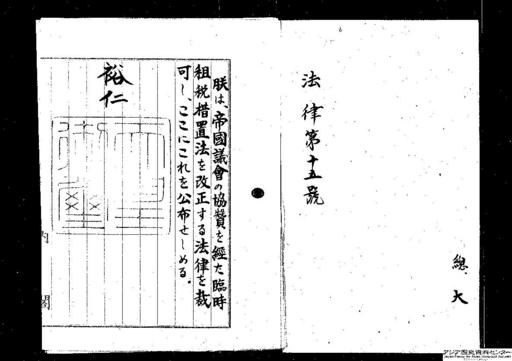 法律第十五號
總、大
朕は、帝國議會の協贊を經た臨時
租税措置法を改正する法律を裁
可し、ここにこれを公布せしめる。
裕仁
内閣
アジア歴史資料センター